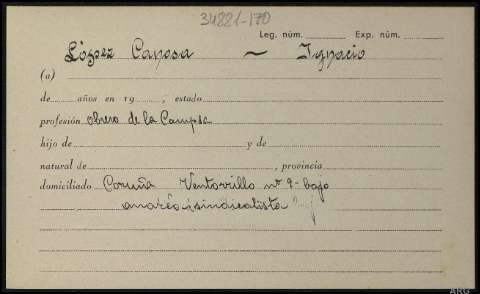 34881-170
Leg. núm. Exp. núm.
López Caposa ~ Ignacio
(a)
de años en 19 , estado
profesión obrero de la Campsa
hijo de y de
natural de , provincia
domiciliado Coruña Ventorrillo nº 9-bajo
anarco-sindicalista
ARG